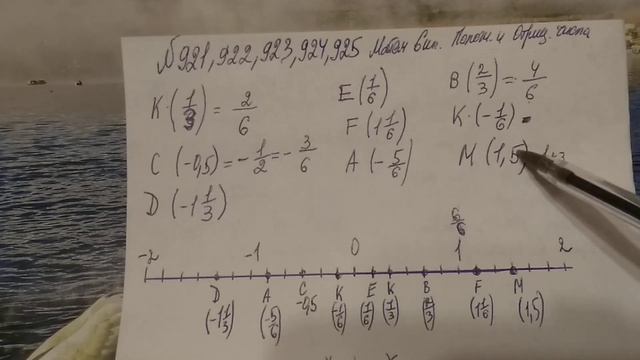 №921,922,923,924,925 Матем 6кл. Полож. и Отриц. числа
K·(1/3) = 2/6 E(1/6) B(2/3) = 4/6
F(1 1/6) K·(-1/6)
C(-0,5) = -1/2 = -3/6 A(-5/6) M(1,5)
D(-1 1/3)
6/6
-2 -1 0 1 2
D A C K E K B F M
(-1 1/3) (-5/6) -0,5 (-1/6) (1/6) (1/3) (2/3) (1 1/6) (1,5)